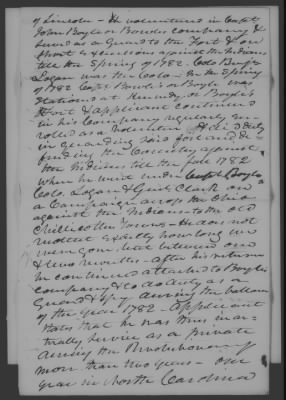 of Lincoln - He volunteered in Capt
John Boyle or Bowles company &
served as a Guard to the Fort & on
Scouts & excursions against the Indians
till the Spring of 1782. Colo Benjn
Logan was the Colo - In the Spring
of 1782 Capt Bowles or Boyle was
stationed at Kennedy or Bowles
Fort & applicant continued
in his company regularly en-
rolled as a volunteer He did duty
in guarding said fort and de-
fending the Country against
the Indians till the fall 1782
when he went under Capt Boyle
Colo Logan & Genl Clark on
a Campaign across the Ohio
against the Indians to the old
Chillicothe Towns - He does not
recollect exactly how long we
were gone but between one
& two months - after his return
he continued attached to Boyles
company & to do duty as a
Guard & Spy during the balance
of the year 1782 - Applicant
states that he was thus in ac-
tual service as a private
during the Revolutionary
more than two years - one
year in North Carolina